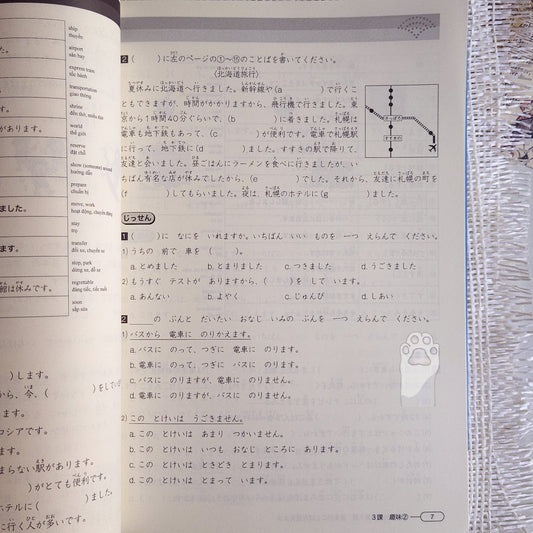 ship
thuyền
airport
sân bay
express train
tốc hành
transportation
giao thông
shrine
đền thờ, miếu thờ
world
thế giới
reserve
đặt chỗ
show (someone) around
hướng dẫn
prepare
chuẩn bị
move, work
hoạt động, chuyển động
stay
trọ
transfer
đổi xe, chuyển xe
stop, park
dừng xe, đỗ xe
regrettable
đáng tiếc, tiếc nuối
soon
sắp sửa
ました。
ます。
館は休みです。
)します。
から、今、(　　　)をしてい
す。
ロシアです。
まらない駅があります。
)がとても便利です。
ホテルに(　　　)ました。
に行く人が多いです。
2 (　　)に左のページの①～⑮のことばを書いてください。
〈北海道旅行〉
夏休みに北海道へ行きました。新幹線や(a　　　)で行くこ
ともできますが、時間がかかりますから、飛行機で行きました。東
京から1時間40分ぐらいで、(b　　　)に着きました。札幌は
電車も地下鉄もあって、(c　　　)が便利です。電車で札幌駅
に行って、地下鉄に(d　　　)ました。すすきの駅で降りて、
友達と会いました。昼ごはんにラーメンを食べに行きましたが、い
ちばん有名な店が休みでしたから、(e　　　)でした。それから、友達に札幌の町を
(f　　　)してもらいました。夜は、札幌のホテルに(g　　　)ました。
さっぽろ
すすきの
じっせん
1 (　　)に なにを いれますか。いちばん いい ものを 一つ えらんで ください。
1) うちの 前で 車を (　　)。
a. とめました　b. とまりました　c. つきました　d. うごきました
2) もうすぐ テストが ありますから、(　　)を して います。
a. あんない　b. よやく　c. じゅんび　d. しあい
2 ＿＿の ぶんと だいたい おなじ いみの ぶんを 一つ えらんで ください。
1) バスから 電車に のりかえます。
a. バスに のって、つぎに 電車に のります。
b. 電車に のって、つぎに バスに のります。
c. バスに のりますが、電車に のりません。
d. 電車に のりますが、バスに のりません。
2) この とけいは うごきません。
a. この とけいは あまり つかいません。
b. この とけいは いつも おなじ ところに あります。
c. この とけいは ときどき とまります。
d. この とけいは とまって います。
3課 趣味② 7